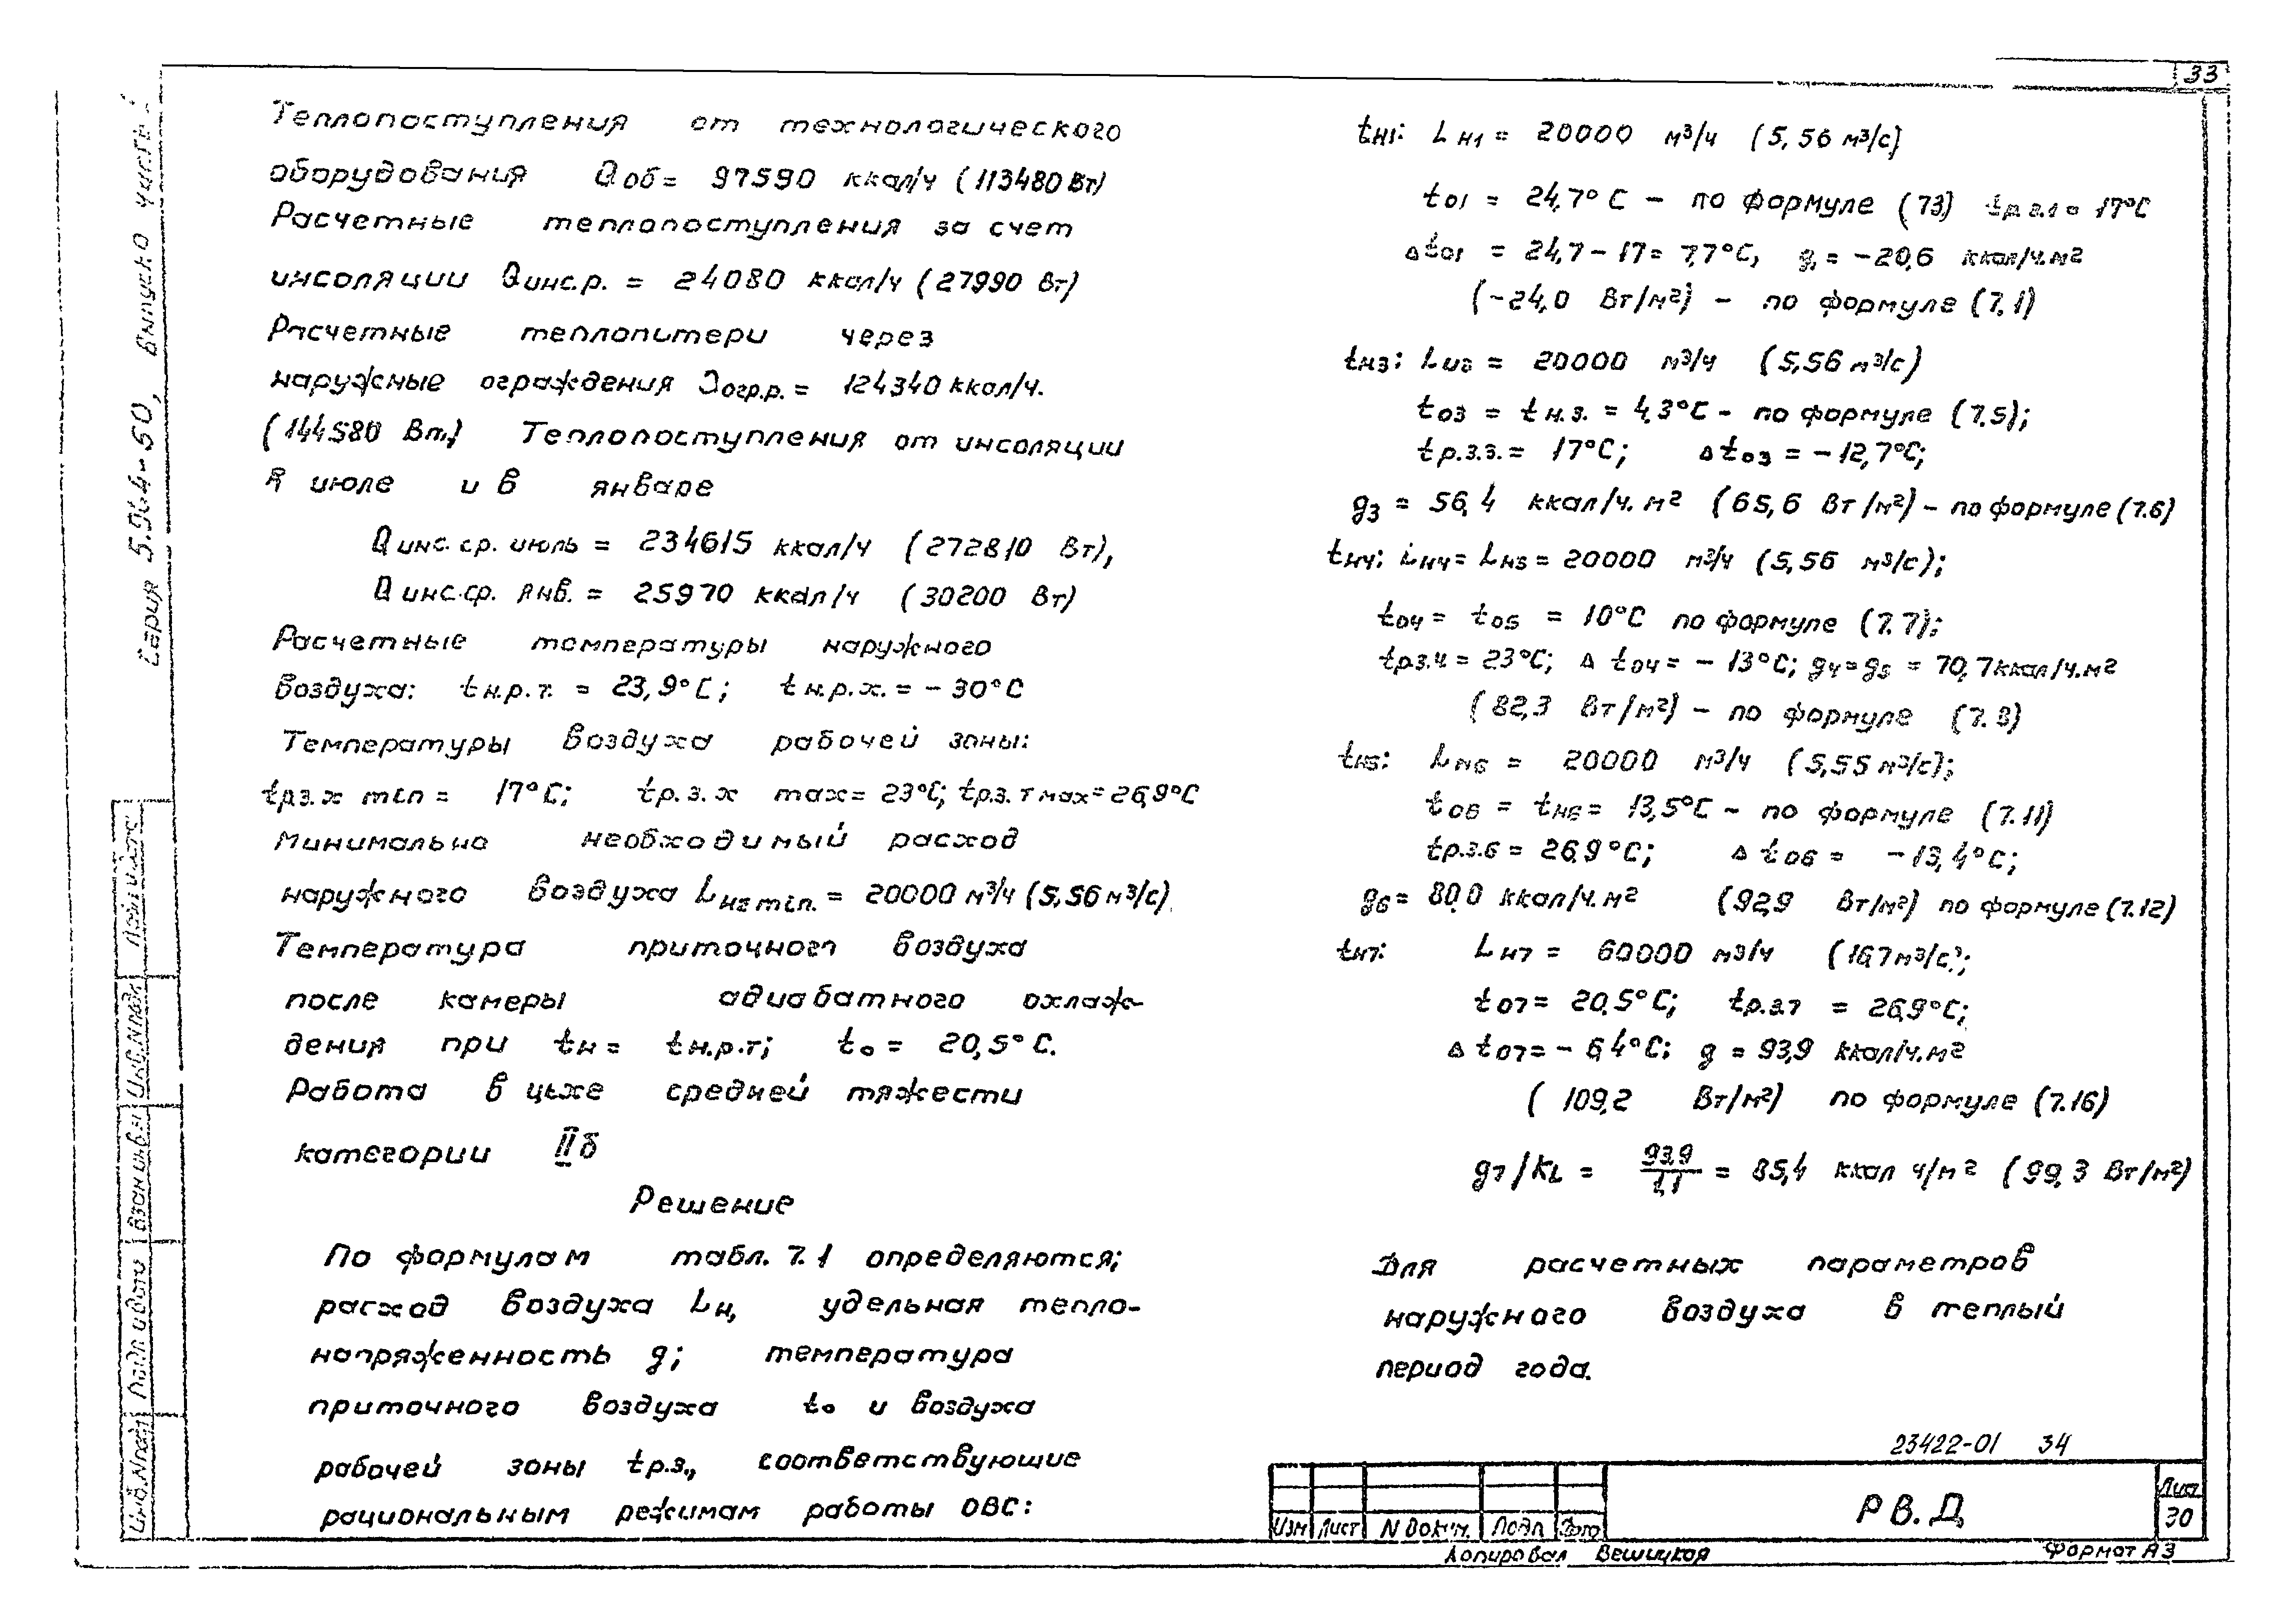 33
Теплопоступления от технологического
оборудования Qоб= 97590 ккал/ч (113480 Вт)
Расчетные теплопоступления за счет
инсоляции Qинс.р. = 24080 ккал/ч (27990 Вт)
Расчетные теплопотери через
наружные ограждения Qогр.р. = 124340 ккал/ч.
(144580 Вт.) Теплопоступления от инсоляции
в июле и в январе
Q инс. ср. июль = 234615 ккал/ч (272810 Вт),
Q инс.ср. янв. = 25970 ккал/ч (30200 Вт)
Расчетные температуры наружного
воздуха: tн.р.т. = 23,9°C; tн.р.х. = -30°C
Температуры воздуха рабочей зоны:
tр.з.х min = 17°C; tр.з.х max = 23°C; tр.з.т max = 26,9°C
Минимально необходимый расход
наружного воздуха Lнг min. = 20000 м³/ч (5,56 м³/с).
Температура приточного воздуха
после камеры адиабатного охлаж-
дения при tн = tн.р.т; tо = 20,5°C.
Работа в цехе средней тяжести
категории IIб
Решение
По формулам табл. 7.1 определяются;
расход воздуха Lн, удельная тепло-
напряженность g; температура
приточного воздуха tо и воздуха
рабочей зоны tр.з., соответствующие
рациональным режимам работы ОВС:
tн1: Lн1 = 20000 м³/ч (5,56 м³/с)
tо1 = 24,7°C – по формуле (7.3) tр.з.1 = 17°C
Δtо1 = 24,7-17= 7,7°C, g1 = -20,6 ккал/ч.м²
(-24,0 Вт/м²) – по формуле (7.1)
tн3: Lнг = 20000 м³/ч (5,56 м³/с)
tо3 = tн.з. = 4,3°C - по формуле (7.5);
tр.з.3. = 17°C; Δtо3 = -12,7°C;
g3 = 56,4 ккал/ч. м² (65,6 Вт/м²) – по формуле (7.6)
tн4: Lн4 = Lн5 = 20000 м³/ч (5,56 м³/с);
tо4 = tо5 = 10°C по формуле (7.7);
tр.з.4 = 23°C; Δtо4 = -13°C; g4=g5 = 70,7 ккал/ч.м²
(82,3 Вт/м²) – по формуле (7.8)
tн5: Lн6 = 20000 м³/ч (5,55 м³/с);
tо6 = tн6 = 13,5°C – по формуле (7.11)
tр.з.6 = 26,9°C; Δtо6 = -13,4°C;
g6 = 80,0 ккал/ч.м² (92,9 Вт/м²) по формуле (7.12)
tн7: Lн7 = 60000 м³/ч (16,7 м³/с);
tо7 = 20,5°C; tр.з.7 = 26,9°C;
Δtо7 = -6,4°C; g = 93,9 ккал/ч.м²
(109,2 Вт/м²) по формуле (7.16)
g7/kL = 93,9/1,1 = 85,4 ккал ч/м² (99,3 Вт/м²)
Для расчетных параметров
наружного воздуха в теплый
период года.
23422-01 34
Изм Лист N докум. Подп Дата
РВ.Д
Лист
30
Копировал Вешицкая
Формат А3
Серия 5.904-50, Выпуск 0 часть
Подп и дата
Инв.N подл
Взам инв.N
Подп и дата
Инв.N подл